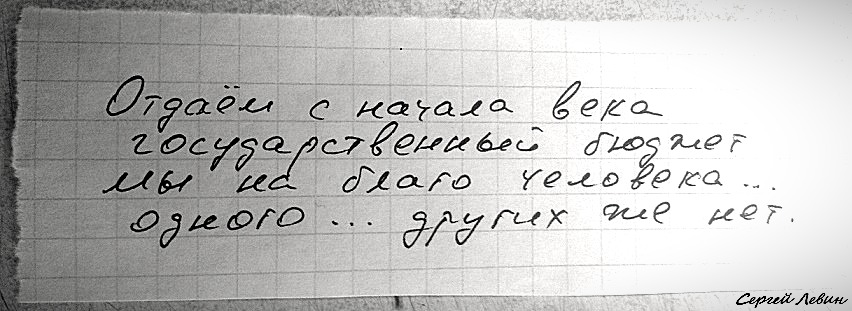 Отдаём с начала века
государственный бюджет
мы на благо человека...
одного... других же нет.
Сергей Левин